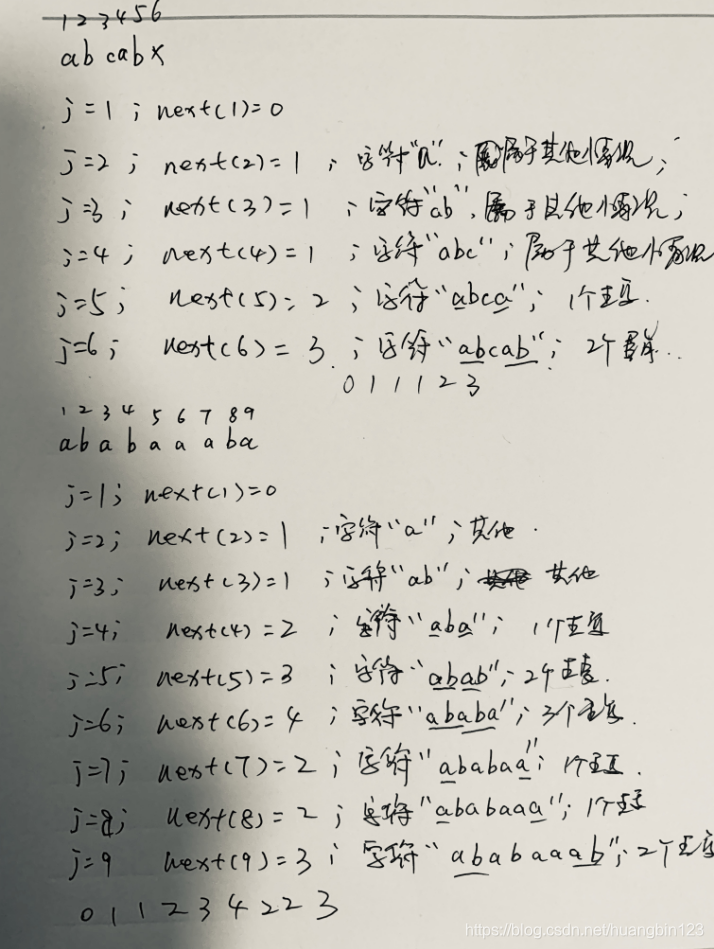 1 2 3 4 5 6
ab cab x
j=1 ; next(1)=0
j=2 ; next(2)=1 ; 字符"a" ; 属于其他情况;
j=3 ; next(3)=1 ; 字符"ab", 属于其他情况;
j=4 ; next(4)=1 ; 字符"abc" ; 属于其他情况
j=5; next(5)=2 ; 字符"abca"; 1个
j=6; next(6)=3 ; 字符"abcab"; 2个
0 1 1 1 2 3
1 2 3 4 5 6 7 8 9
ab a b a a aba
j=1; next(1)=0
j=2; next(2)=1 ; 字符"a" ; 其他.
j=3; next(3)=1 ; 字符"ab" ; 其他
j=4; next(4)=2 ; 字符"aba" ; 1个
j=5; next(5)=3 ; 字符"abab"; 2个
j=6; next(6)=4 ; 字符"ababa"; 3个
j=7; next(7)=2 ; 字符"ababaa"; 1个
j=8; next(8)=2 ; 字符"ababaaa"; 1个
j=9 next(9)=3 ; 字符"ababaaab"; 2个
0 1 1 2 3 4 2 2 3
https://blog.csdn.net/huangbin123